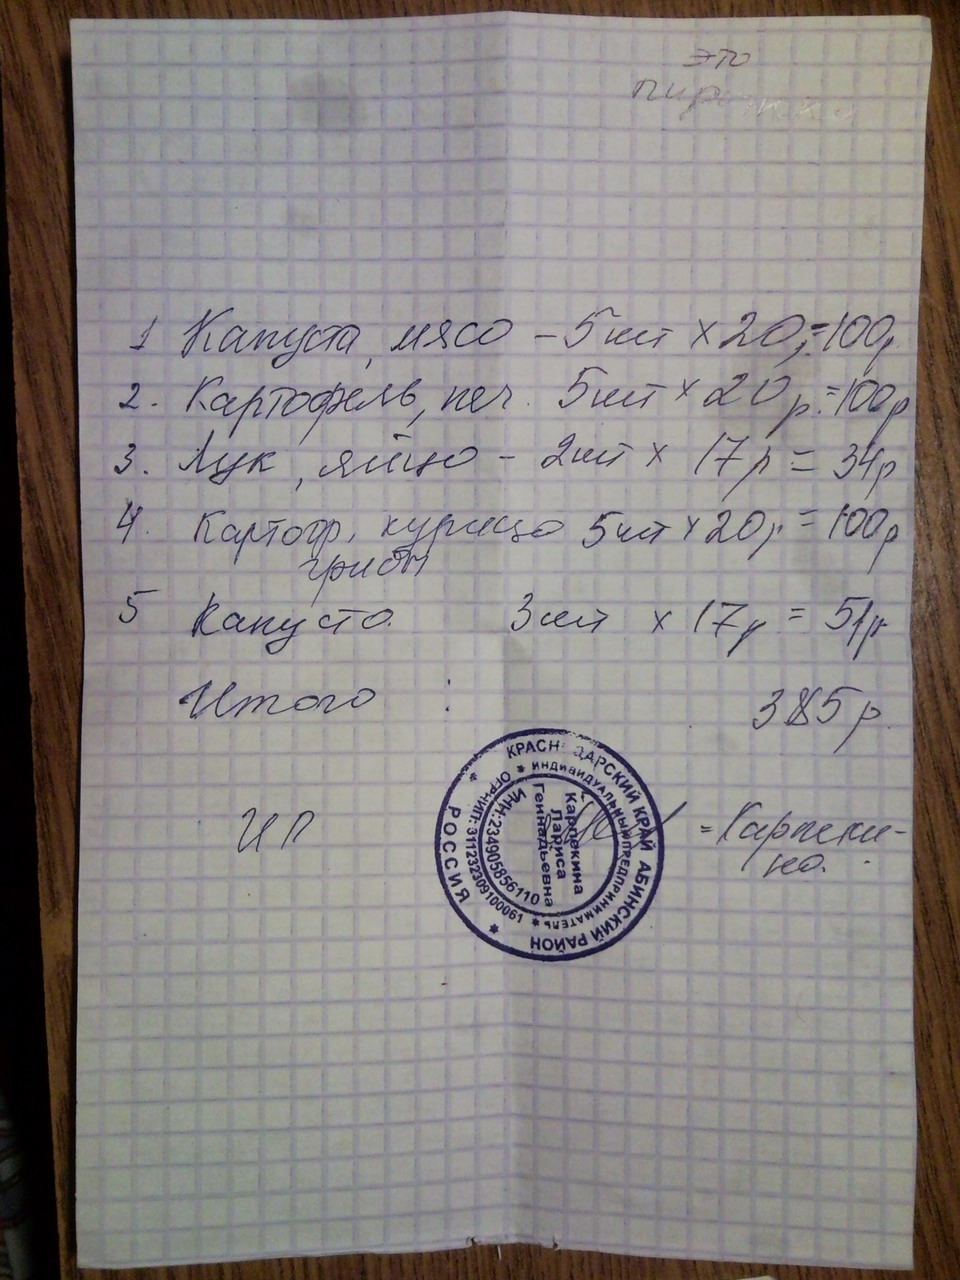 это
пирожки
1 Капуста, мясо – 5шт × 20р=100р
2. Картофель, печ. 5шт × 20р.=100р
3. Лук, яйцо – 2шт × 17р = 34р
4. Картоф, курица 5шт × 20р = 100р
грибы
5 Капуста 3шт × 17р = 51р
Итого : 385р
ИП = Карпеки-
на.
КРАСНОДАРСКИЙ КРАЙ АБИНСКИЙ РАЙОН
* РОССИЯ *
* ИНДИВИДУАЛЬНЫЙ ПРЕДПРИНИМАТЕЛЬ *
ОГРНИП: 311232309100061
ИНН:234905856110
Карпекина
Лариса
Геннадьевна